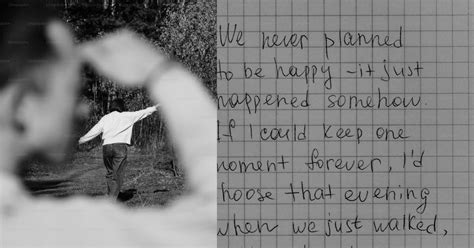 We never planned
to be happy – it just
happened somehow.
If I could keep one
moment forever, I'd
choose that evening
when we just walked,